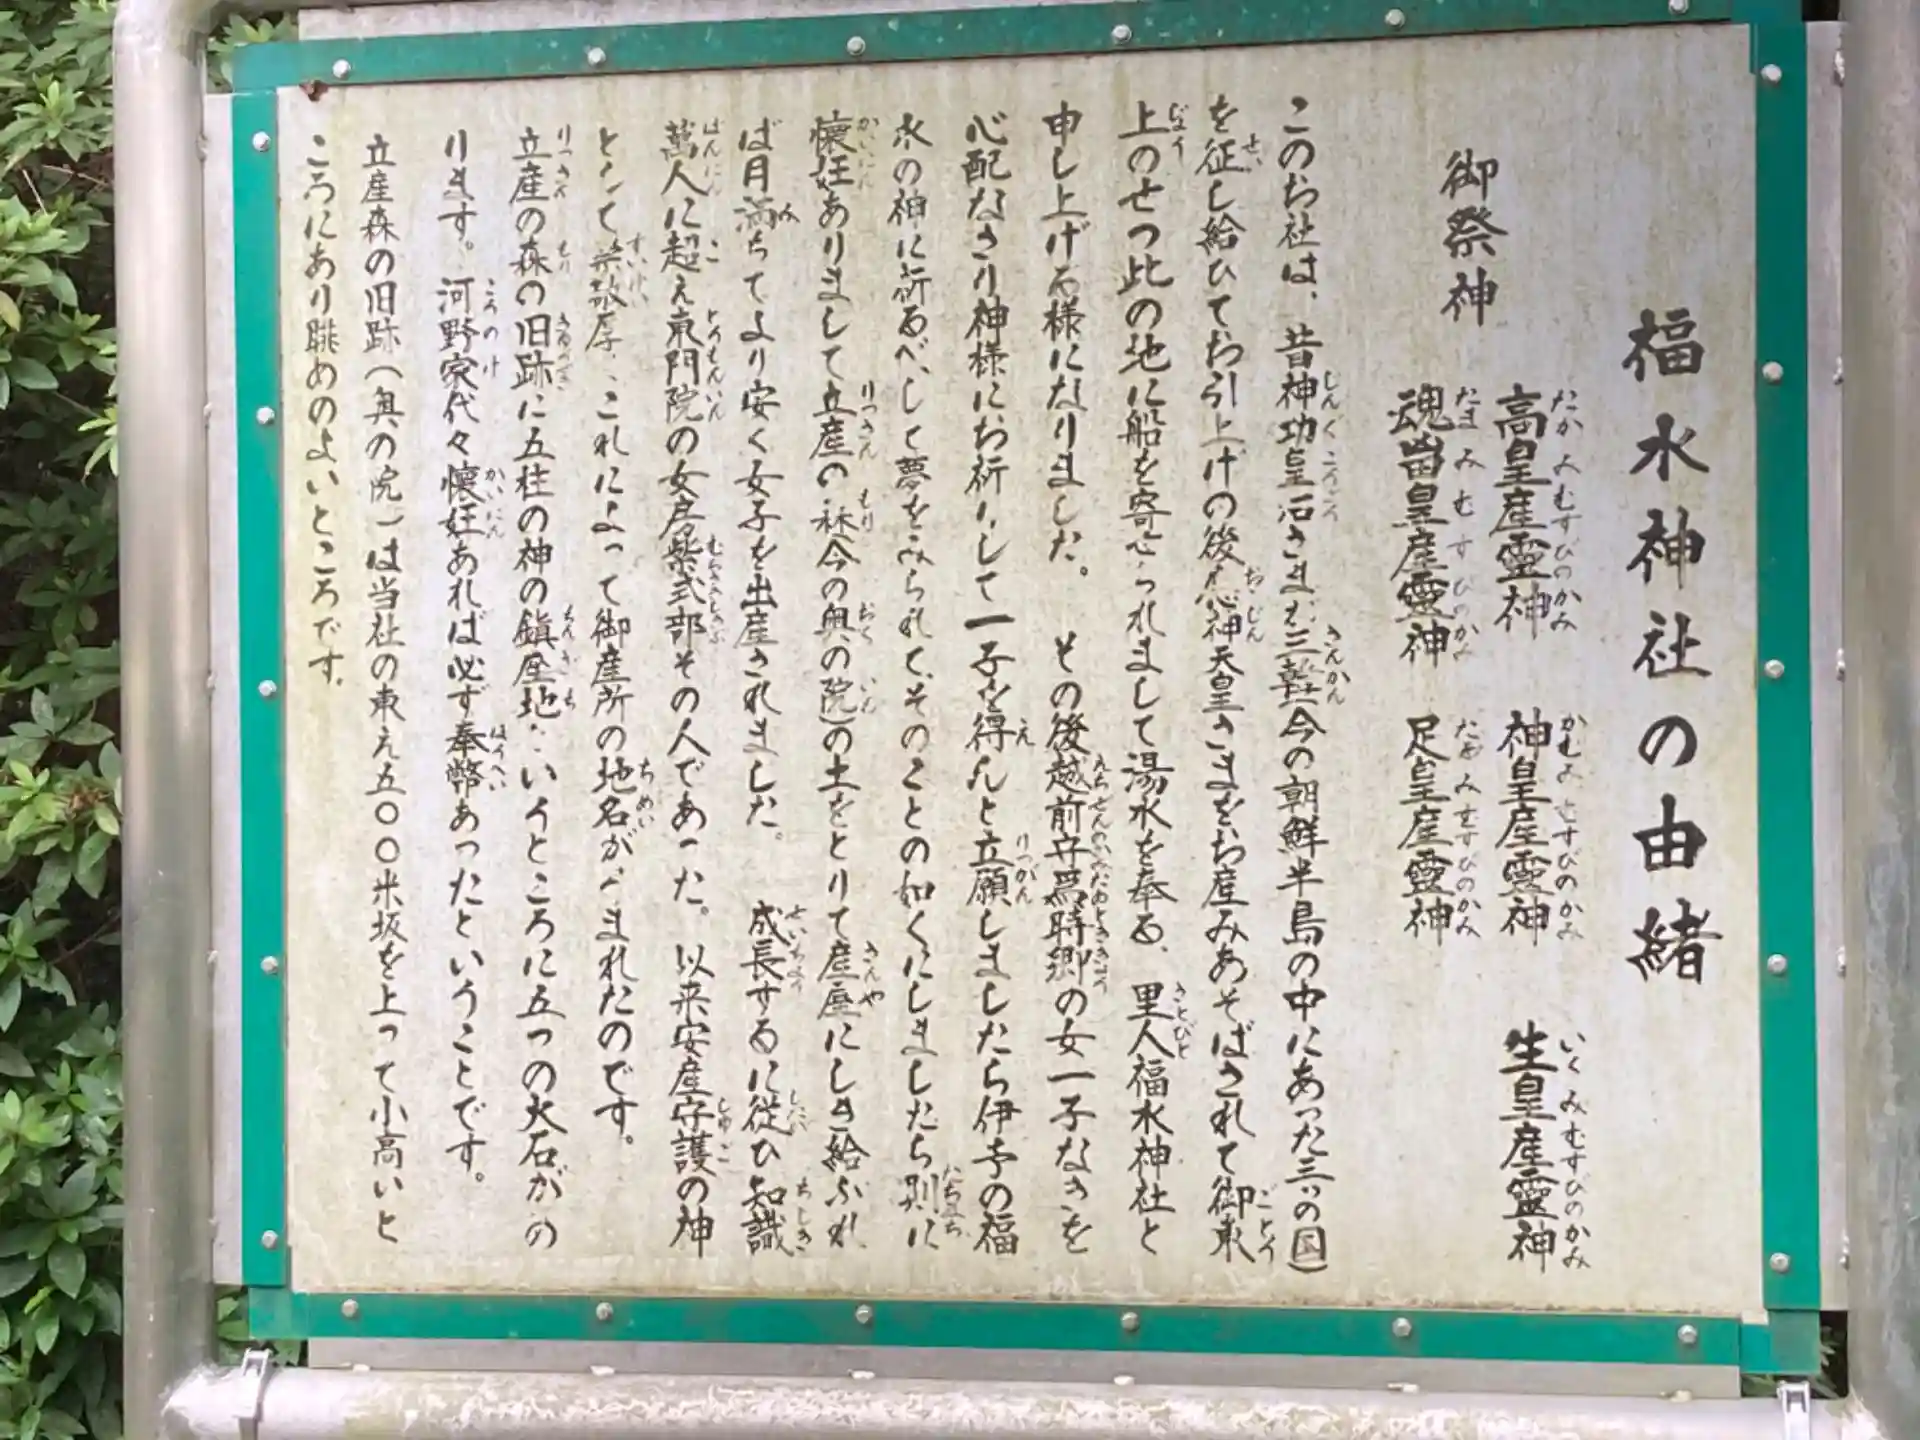 福水神社の由緒
御祭神
高皇産霊神 神皇産霊神 生皇産霊神
魂留皇産霊神 足皇産霊神
このお社は、昔神功皇后さまが三韓今の朝鮮半島の中にあった三つの国)
を征し給ひてお引上げの後応神天皇さまをお産みあそばされて御東
上のせつ此の地に船を寄せられまして湯水を奉る、里人福水神社と
申し上げる様になりました。 その後越前守為時郷の女一子なきを
心配なさり神様にお祈りして一子を得んと立願しましたら伊予の福
水の神に祈るべしして夢をみられて、そのことの如くにしましたら則に
懐妊ありまして立産の森今の奥の院)の土をとりて産屋にしき給ふれ
ば月満ちてより安く女子を出産されました。 成長するに従ひ知識
萬人に超え東門院の女房紫式部その人であった。以来安産守護の神
として崇敬厚くこれによって御産所の地名がうまれたのです。
立産の森の旧跡に五柱の神の鎮座地といふところに五つの大石がの
ります。河野家代々懐妊あれば必ず奉幣あったということです。
立産森の旧跡(奥の院)は当社の東え五〇〇米坂を上って小高いと
ころにあり眺めのよいところです。